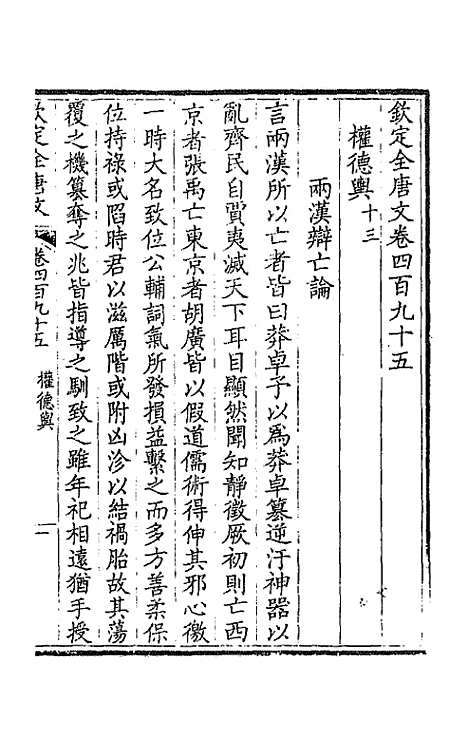 欽定全唐文卷四百九十五
權德輿十三
兩漢辯亡論
言兩漢所以亡者皆曰莽卓予以爲莽卓篡逆汙神器以
亂齊民自賈夷滅天下耳目顯然聞知靜徵厥初則亡西
京者張禹亡東京者胡廣皆以假道儒術得伸其邪心徼
一時大名致位公輔詞氣所發損益繫之而多方善柔保
位持祿或陷時君以滋厲階或附凶沴以結禍胎故其蕩
覆之機篡奪之兆皆指導之馴致之雖年祀相遠猶手授
欽定全唐文
卷四百九十五
權德輿
一